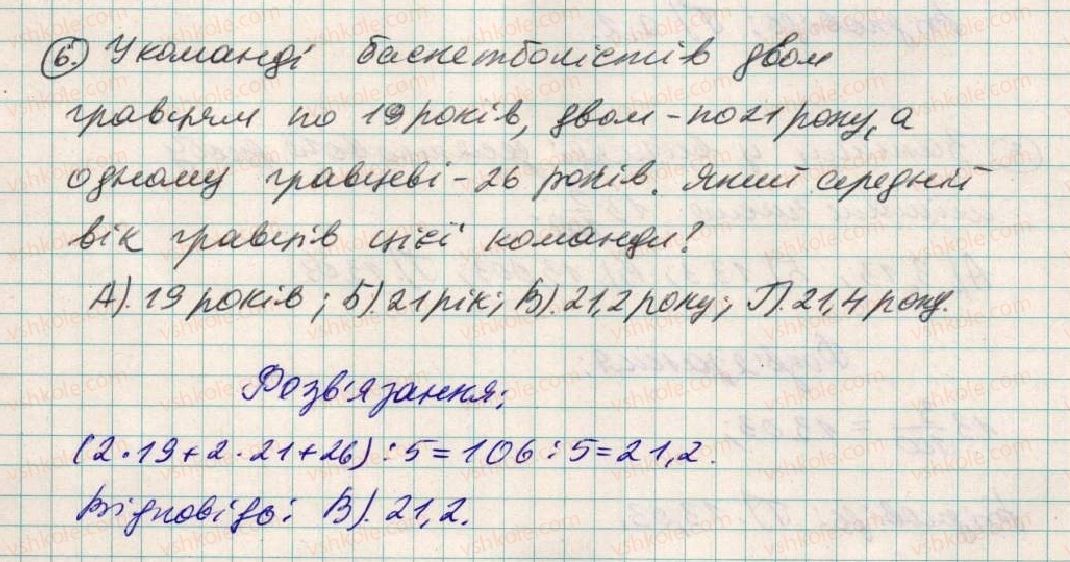 6. У команді баскетболістів двом
гравцям по 19 років, двом - по 21 року, а
одному гравцеві - 26 років. Який середній
вік гравців цієї команди?
А). 19 років; Б). 21 рік; В). 21,2 року; Г). 21,4 року.
Розв'язання:
(2·19+2·21+26):5=106:5=21,2.
Відповідь: В). 21,2.